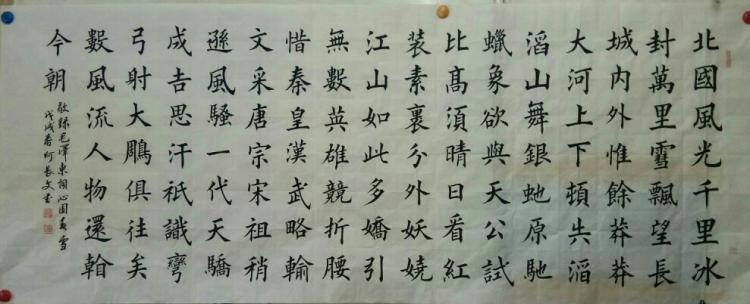 北國風光千里冰
封萬里雪飄望長
城内外惟餘莽莽
大河上下頓失滔
滔山舞銀虵原馳
蠟象欲與天公試
比髙須晴日看紅
装素裹分外妖嬈
江山如此多嬌引
無數英雄競折腰
惜秦皇漢武略輸
文采唐宗宋祖稍
遜風騷一代天驕
成吉思汗祇識彎
弓射大鵰俱往矣
數風流人物還看
今朝
敬録毛澤東詞沁園春雪
戊戌春何長文書